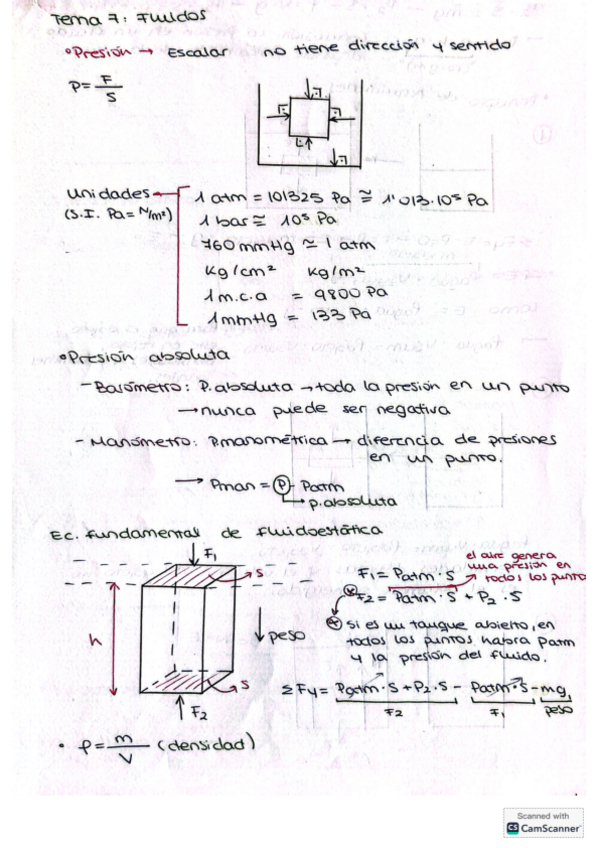 Tema 7: Fluidos
• Presión → Escalar no tiene dirección y sentido
P = F/S
F F F F
Unidades 1 atm = 101325 Pa ≅ 1'013·10⁵ Pa
(S.I. Pa = N/m²) 1 bar ≅ 10⁵ Pa
760 mmHg ≃ 1 atm
kg/cm² kg/m²
1 m.c.a = 9800 Pa
1 mmHg = 133 Pa
• Presión absoluta
- Barómetro: P. absoluta → toda la presión en un punto
→ nunca puede ser negativa
- Manómetro: P. manométrica → diferencia de presiones
en un punto.
→ Pman = P - Patm
p. absoluta
Ec. fundamental de fluidoestática
F₁ S h peso S F₂
el aire genera
una presión en
todos los puntos
F₁ = Patm · S
F₂ = Patm · S + P₂ · S
Si es un tanque abierto, en
todos los puntos habra Patm
y la presión del fluido.
ΣFy = Patm·S + P₂·S - Patm·S - mg
F₂ F₁ peso
• ρ = m/V (densidad)
Scanned with
CS CamScanner